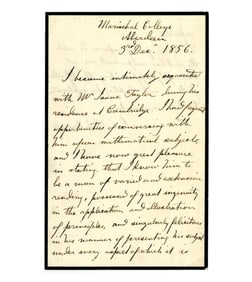 Marischal College
Aberdeen
3 Dec. 1856.
I became intimately acquainted
with Mr Isaac Taylor during his
residence at Cambridge. I had
opportunities of conversing with
him upon mathematical subjects,
and I have now great pleasure
in stating, that I know him to
be a man of varied and extensive
reading, possessed of great ingenuity
in the application and illustration
of principles, and singularly felicitous
in his manner of presenting his subject
under every aspect of which it is